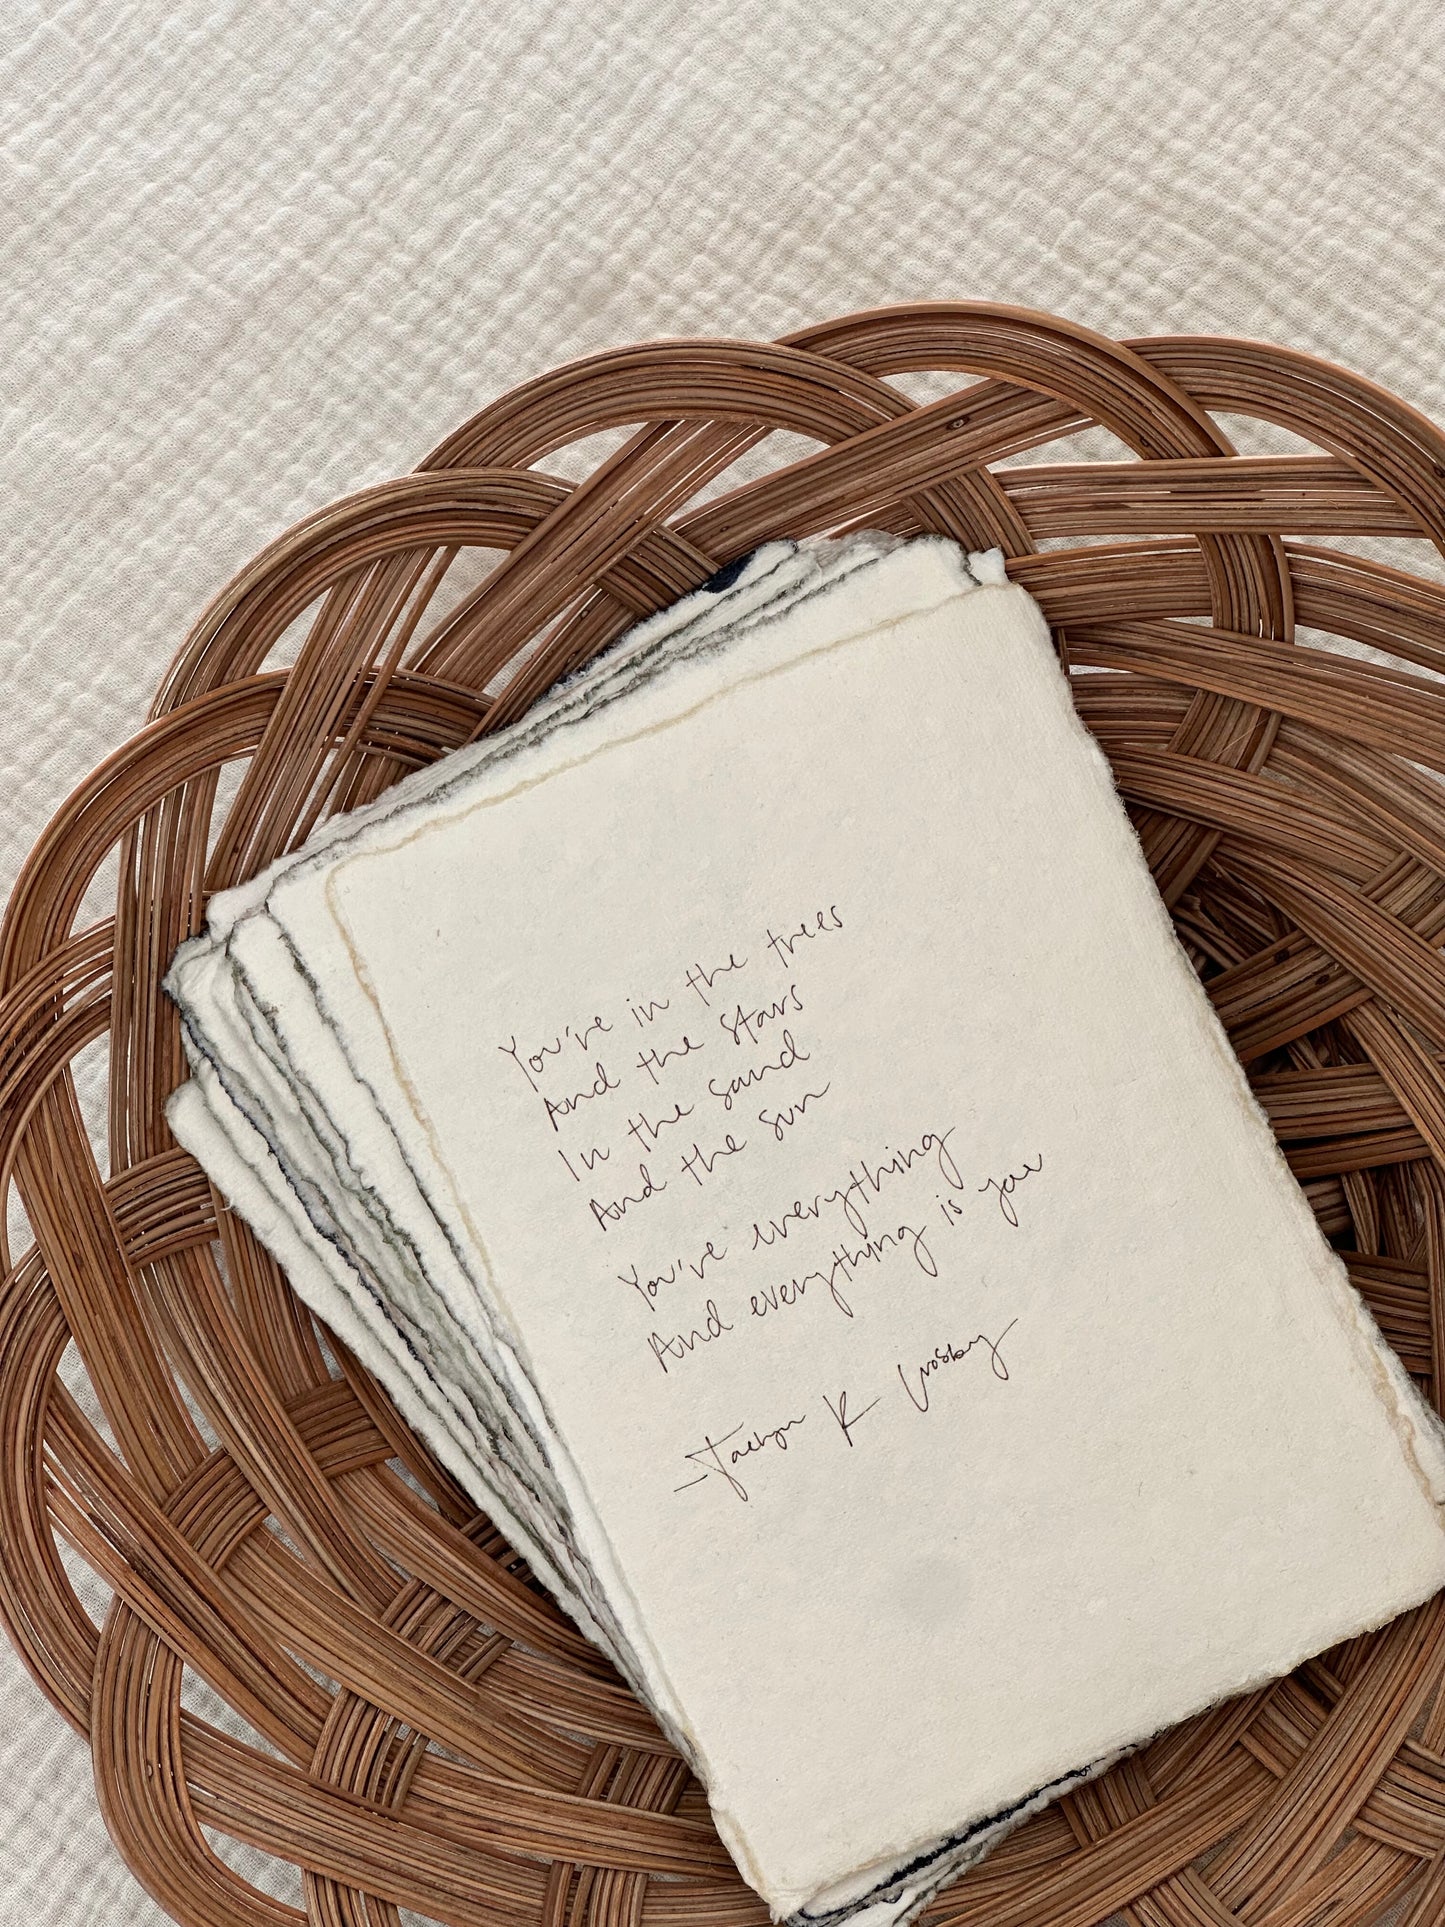 You're in the trees
And the stars
In the sand
And the sun
You're everything
And everything is you
K Crosby